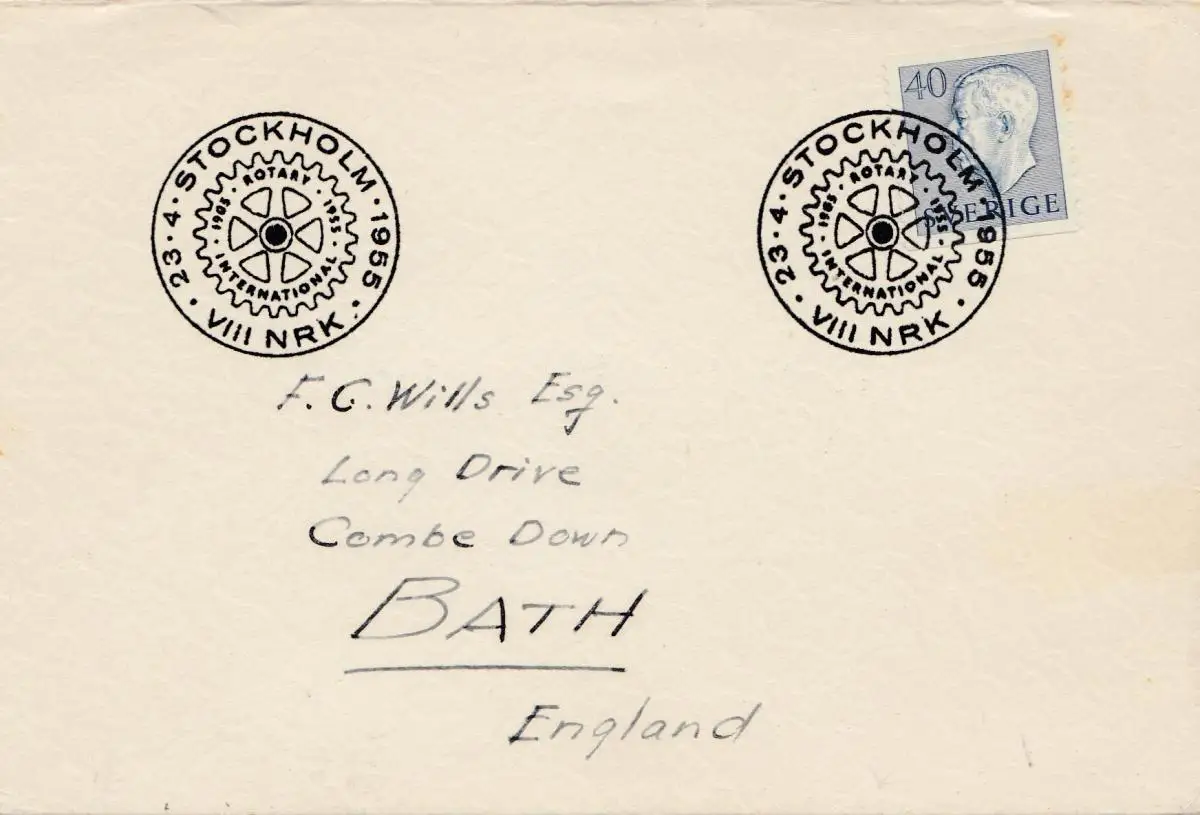 40
SVERIGE
23·4·STOCKHOLM·1955·
VIII NRK
·ROTARY·
1905 1955
·INTERNATIONAL·
23·4·STOCKHOLM·1955·
VIII NRK
·ROTARY·
1905 1955
·INTERNATIONAL·
F.C. Wills Esq.
Long Drive
Combe Down
BATH
England